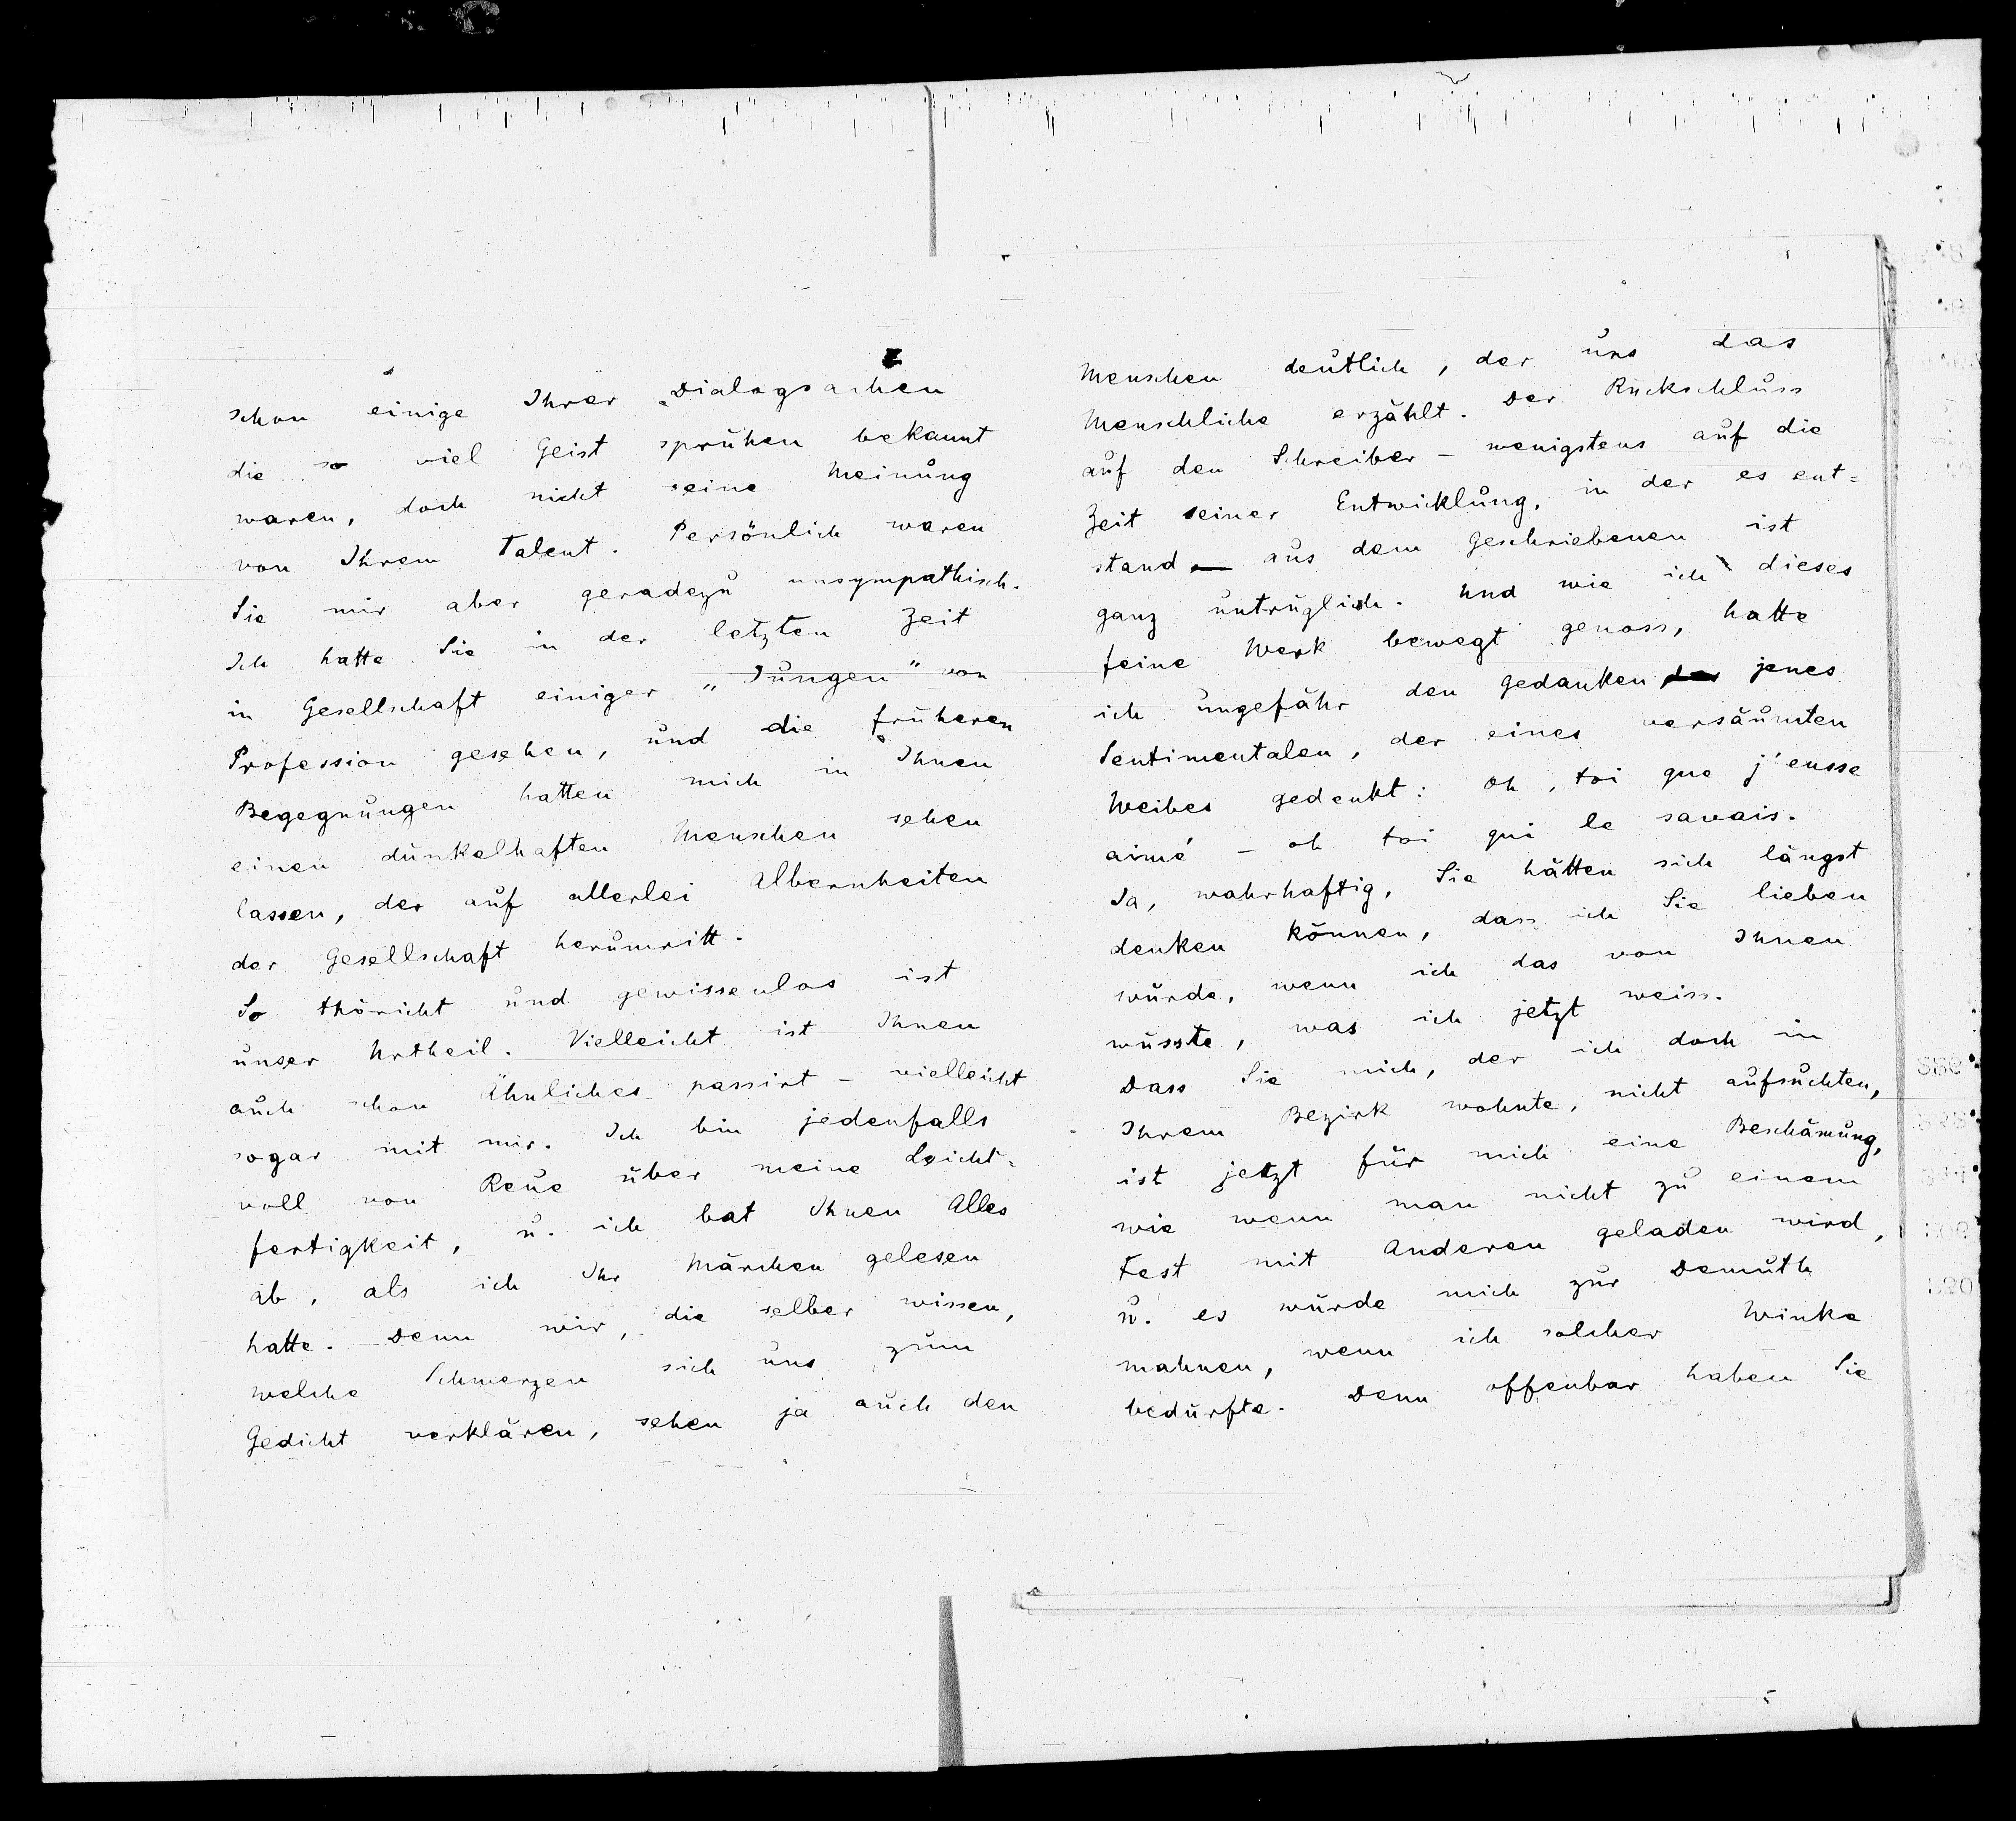 schon einige Ihrer Dialogsachen
die so viel Geist sprühen bekannt
waren, doch nicht seine Meinung
von Ihrem Talent. Persönlich waren
Sie mir aber geradezu unsympathisch.
Ich hatte Sie in der letzten Zeit
in Gesellschaft einiger „Jungen" von
Profession gesehen, und die früheren
Begegnungen hatten mich in Ihnen
einen dünkelhaften Menschen sehen
lassen, der auf allerlei Albernheiten
der Gesellschaft herumritt.
So thöricht und gewissenlos ist
unser Urtheil. Vielleicht ist Ihnen
auch schon Ähnliches passirt – vielleicht
sogar mit mir. Ich bin jedenfalls
voll von Reue über meine Leicht=
fertigkeit, u. ich bat Ihnen Alles
ab, als ich Ihr Märchen gelesen
hatte. Denn wir, die selber wissen,
welche Schmerzen sich uns zum
Gedicht verklären, sehen ja auch den
Menschen deutlich, der uns das
Menschliche erzählt. Der Rückschluss
auf den Schreiber – wenigstens auf die
Zeit seiner Entwicklung, in der es ent=
stand – aus dem Geschriebenen ist
ganz untrüglich. Und wie ich dieses
feine Werk bewegt genoss, hatte
ich ungefähr den Gedanken jenes
Sentimentalen, der eines versäumten
Weibes gedenkt: oh, toi que j'eusse
aimé – oh toi qui le savais.
Ja, wahrhaftig, Sie hätten sich längst
denken können, dass ich Sie lieben
würde, wenn ich das von Ihnen
wüsste, was ich jetzt weiss.
Dass Sie mich, der ich doch in
Ihrem Bezirk wohnte, nicht aufsuchten,
ist jetzt für mich eine Beschämung,
wie wenn man nicht zu einem
Fest mit Anderen geladen wird,
u. es würde mich zur Demuth
mahnen, wenn ich solcher Winke
bedürfte. Denn offenbar haben Sie